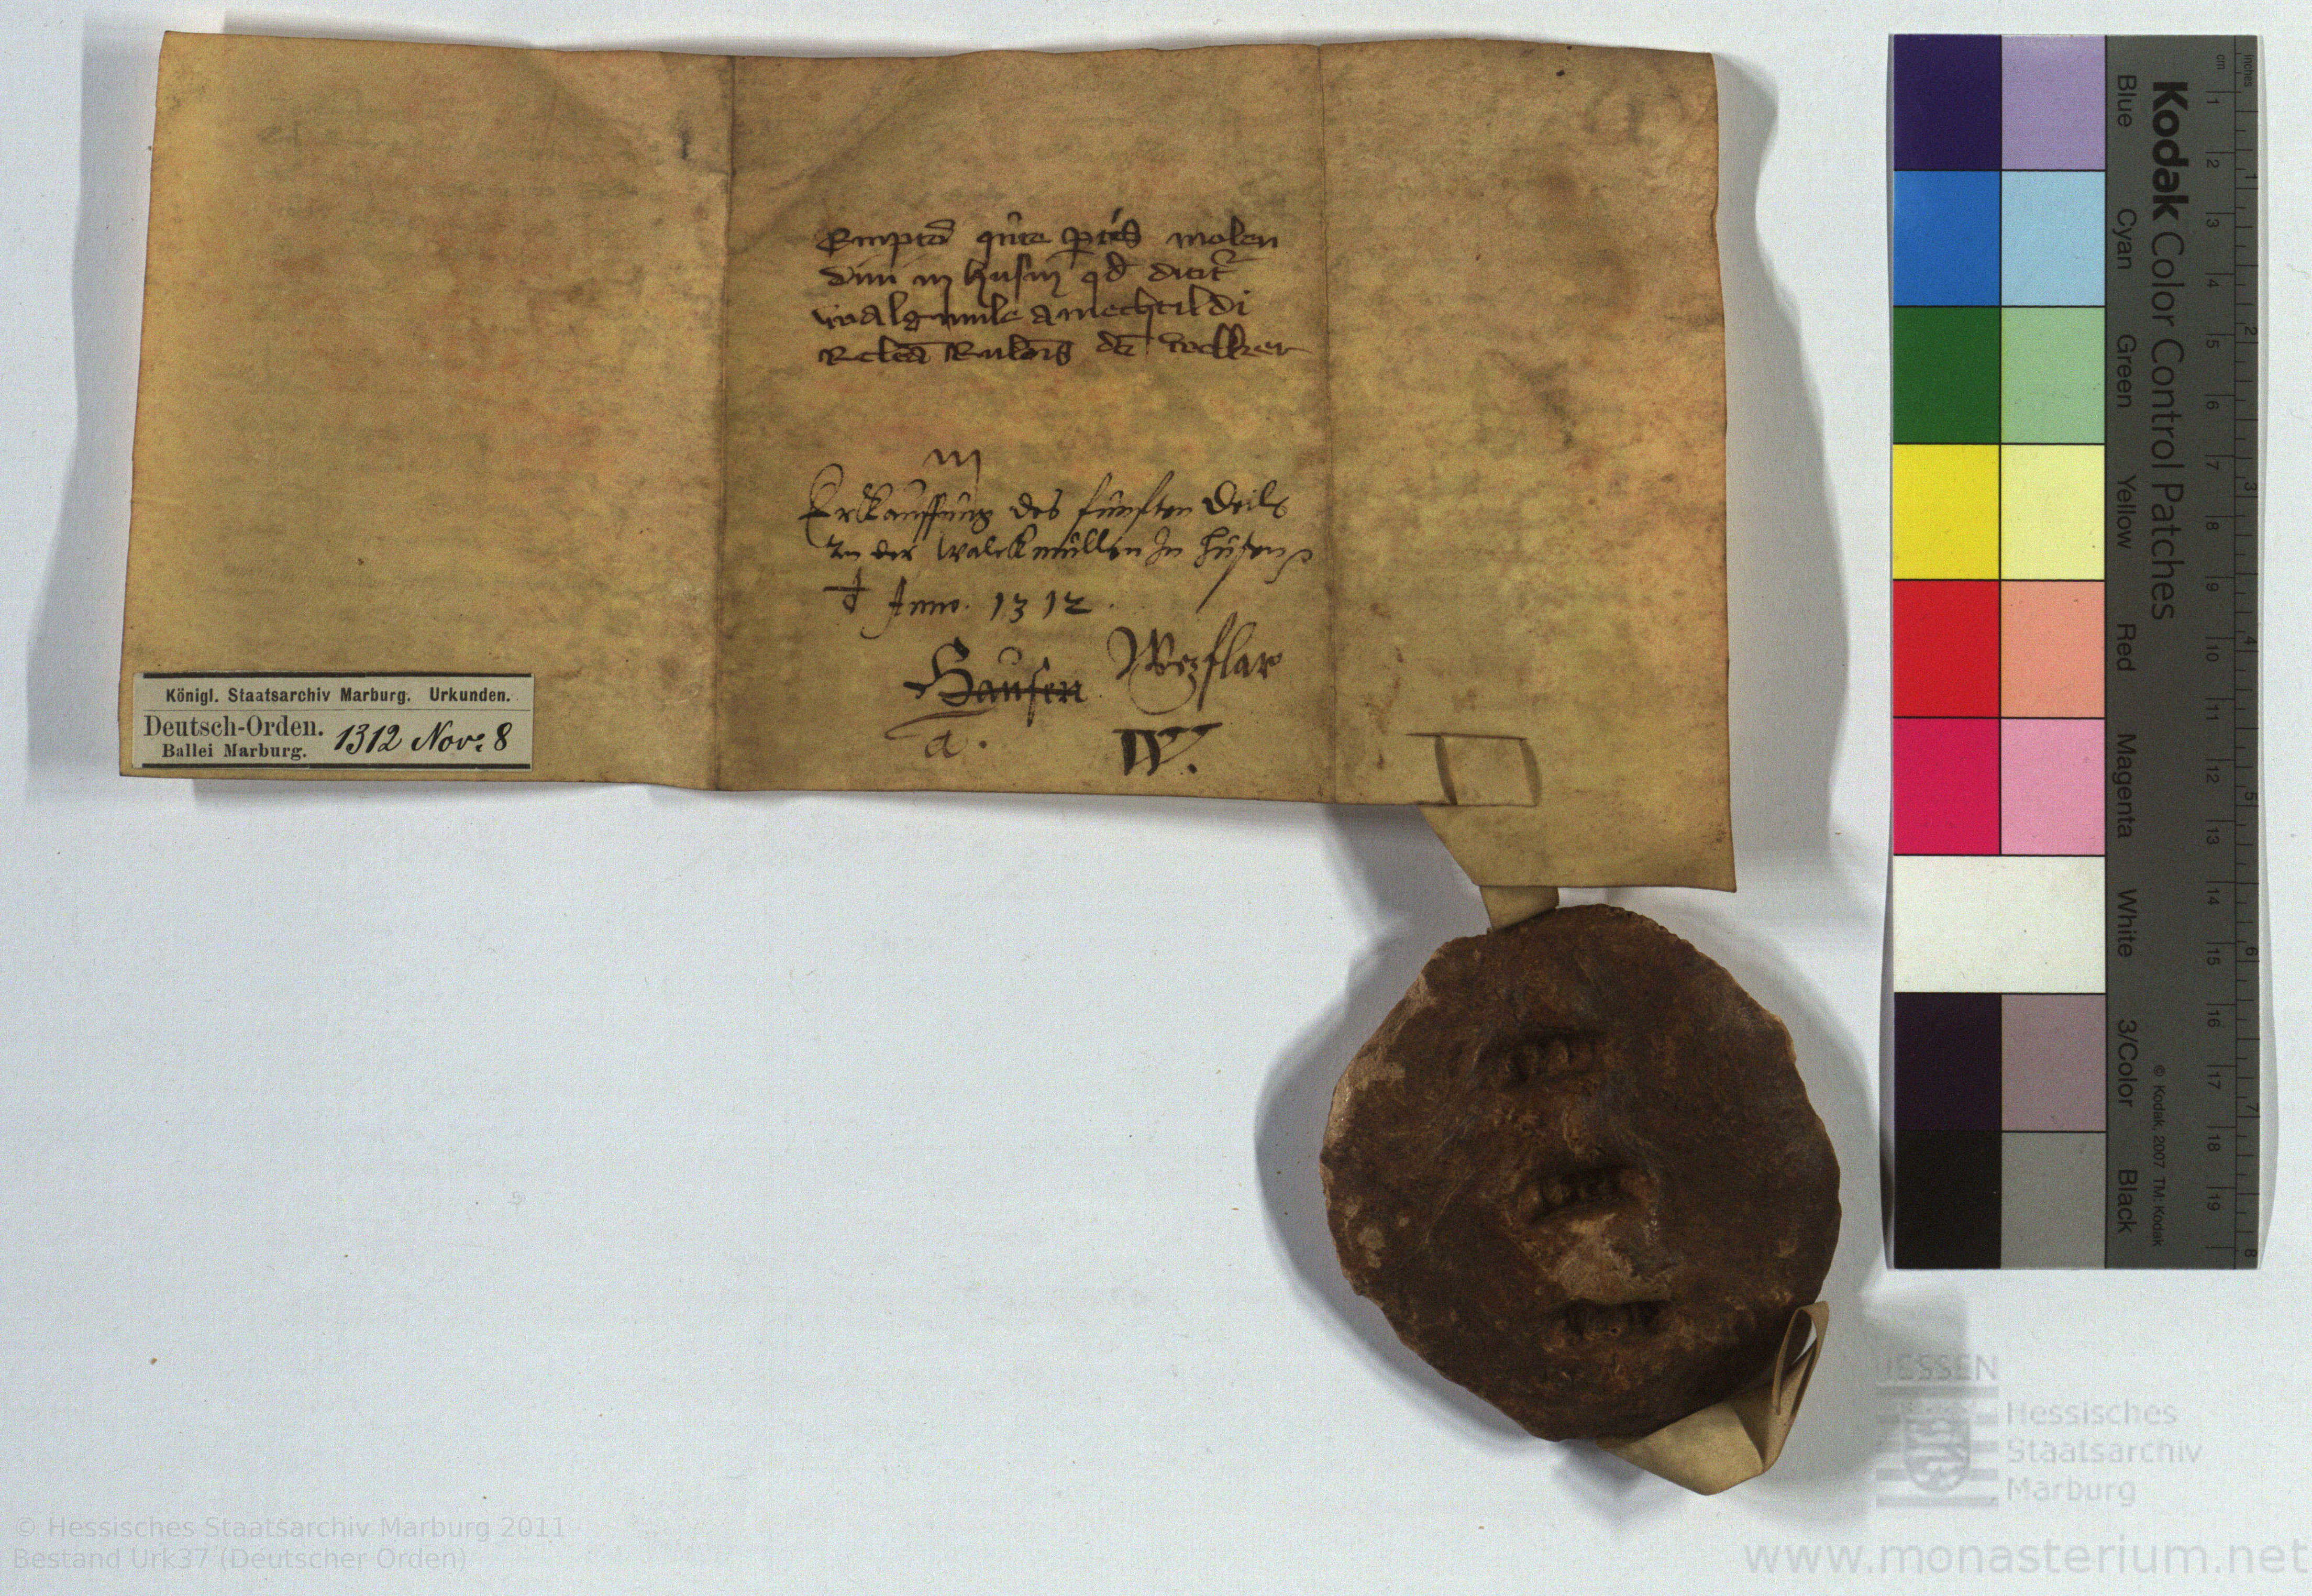 Emptō qͥnte ꝑtis molen
dini in husin qd dicitͬ
walgmule a mechtildi
Relcā Rulōis dc̄i
III
Erkauffung des funften deils
In der walckmüllen In Husen
Anno. 1312.
Hausen Wezflar
a. W.
Königl. Staatsarchiv Marburg. Urkunden.
Deutsch-Orden.
Ballei Marburg. 1312 Nov: 8
Kodak Color Control Patches
Blue Cyan Green Yellow Red Magenta White 3/Color Black
© Kodak, 2007 TM: Kodak
cm 1 2 3 4 5 6 7 8 9 10 11 12 13 14 15 16 17 18 19
inches 1 2 3 4 5 6 7 8
HESSEN
Hessisches
Staatsarchiv
Marburg
© Hessisches Staatsarchiv Marburg 2011
Bestand Urk37 (Deutscher Orden)
www.monasterium.net